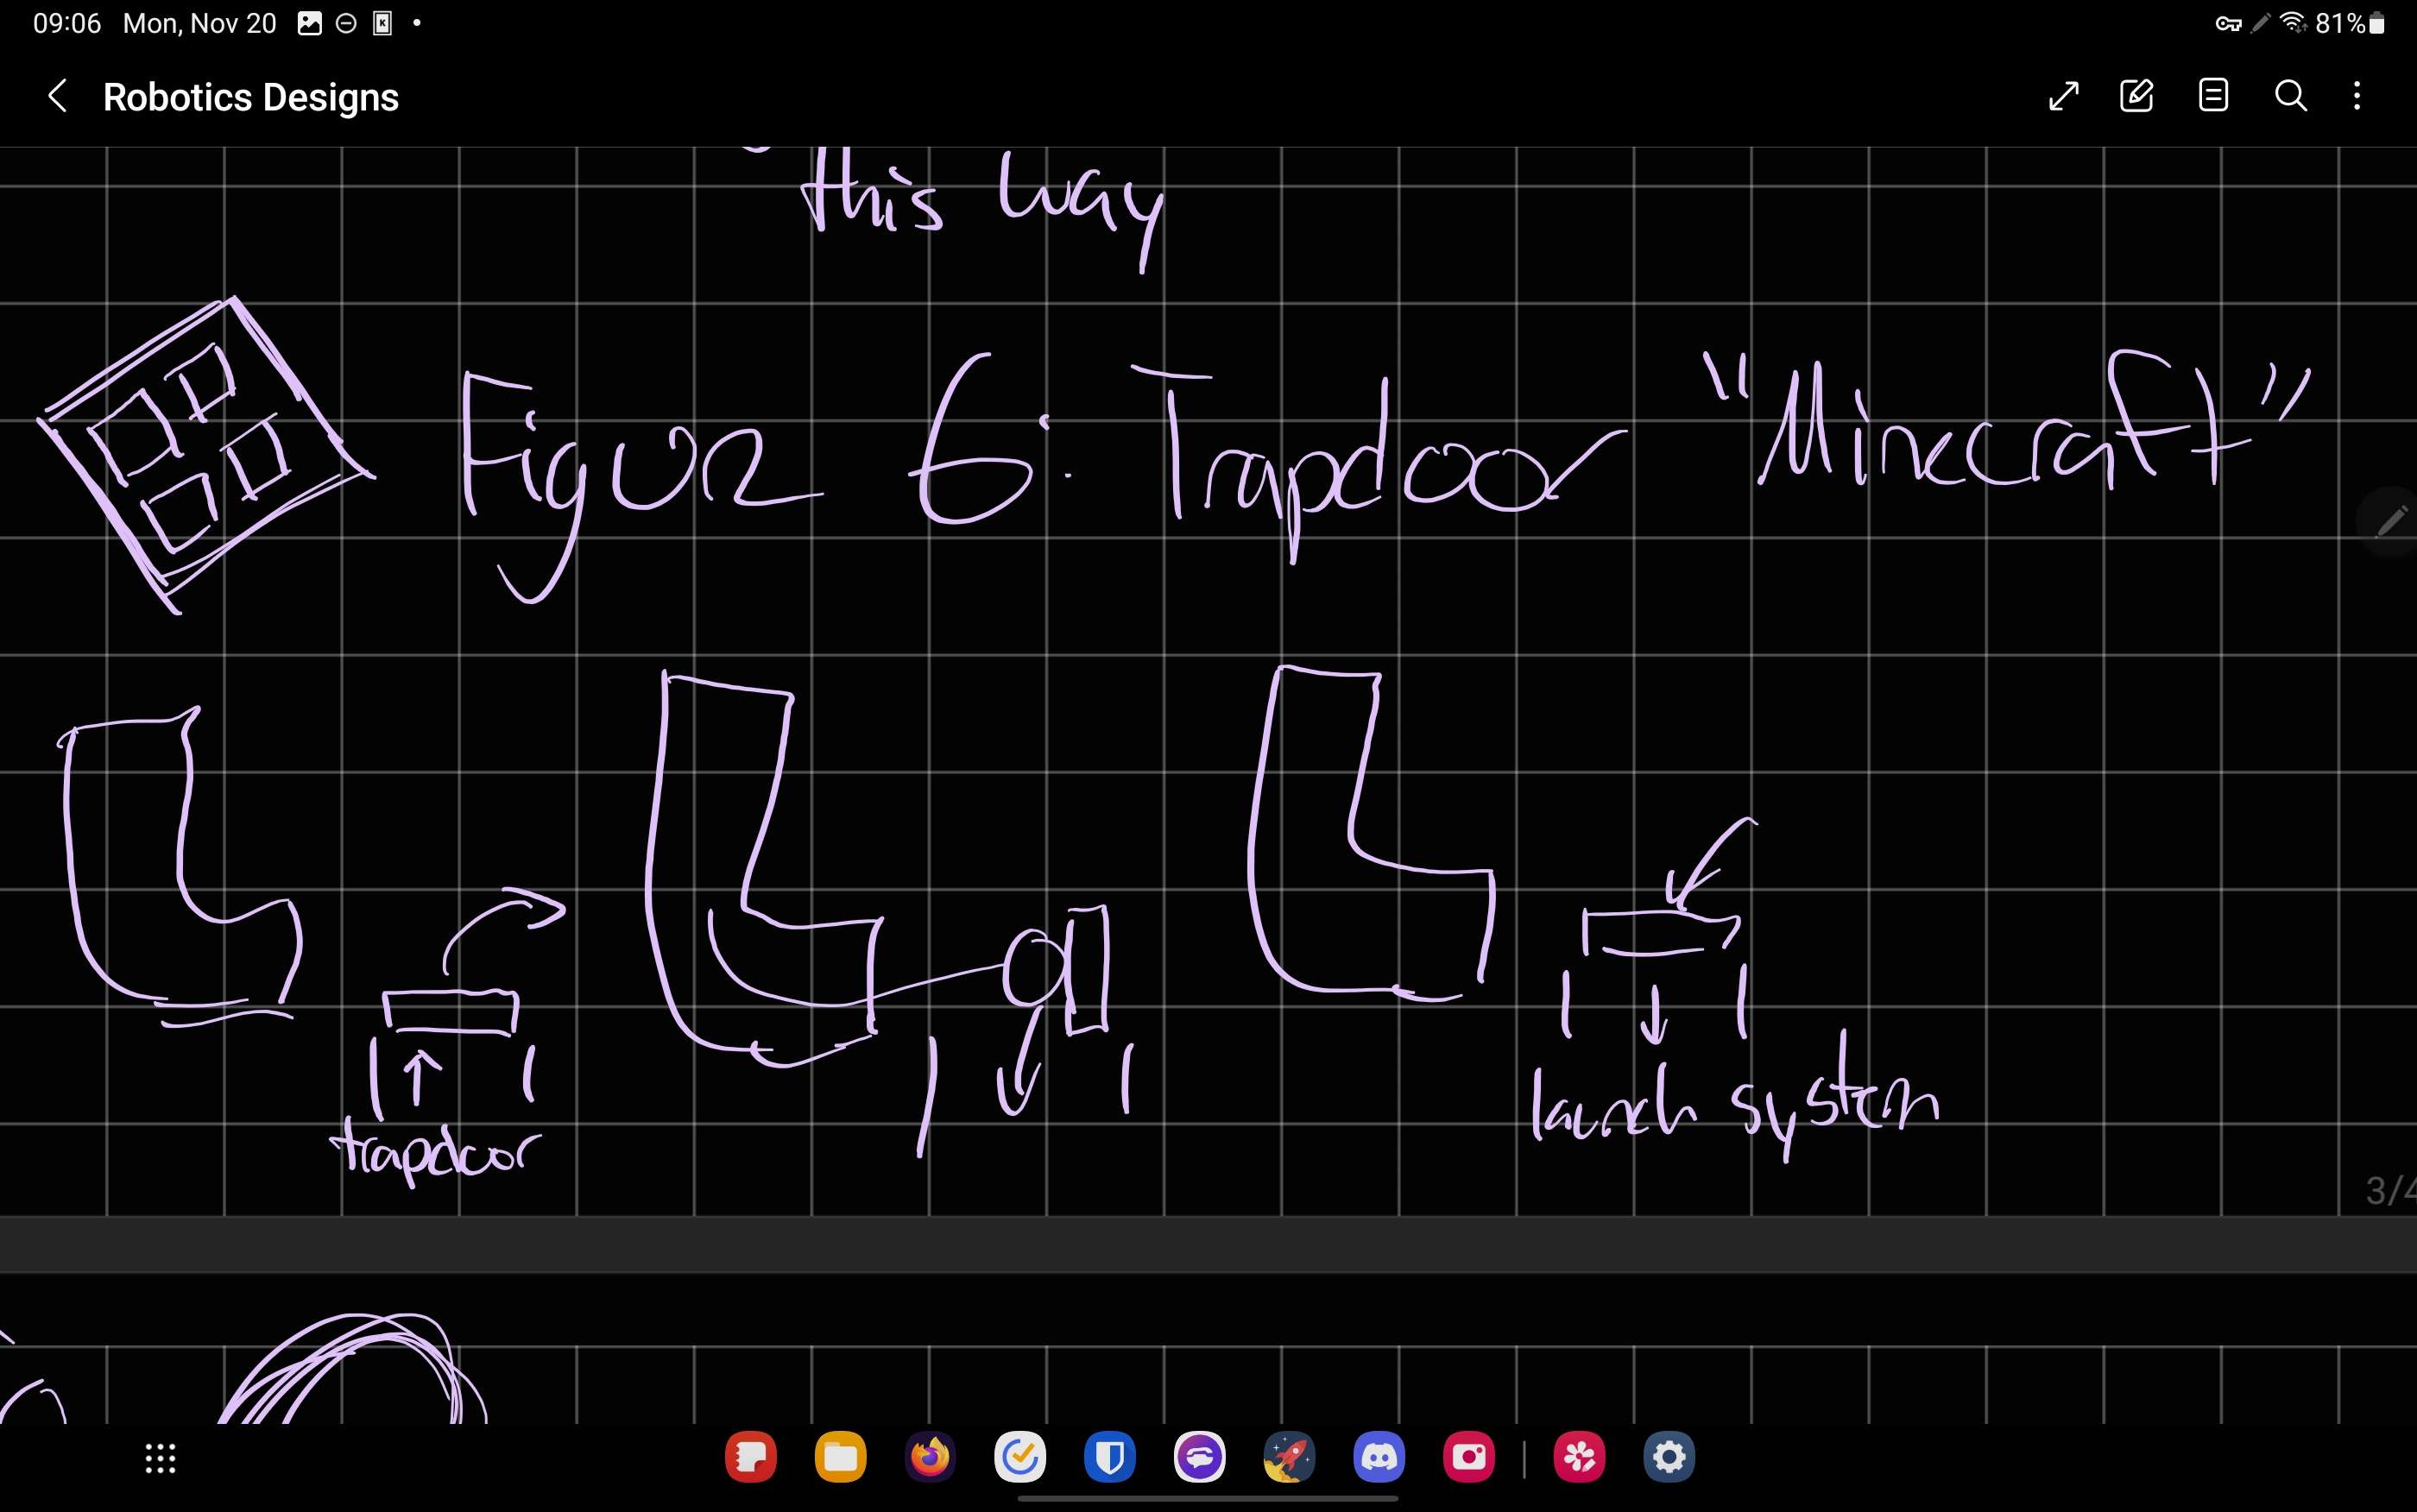 09:06 Mon, Nov 20 81%
Robotics Designs
this way
Figure 6: Trapdoor "Minecraft"
trapdoor
launch system
3/4